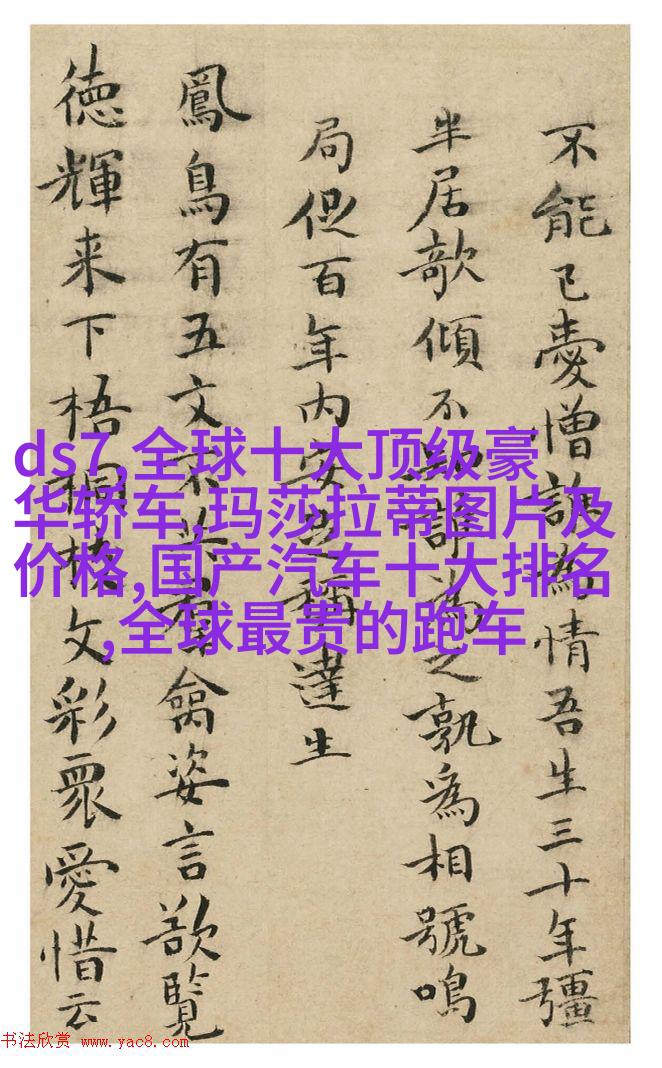 不能已愛憎為情吾生三十年彊
半居欹傾不為之孰為相號鳴
局促百年内安稱達生
鳳鳥有五文禽姿言欲覽
徳輝来下梧桐枝文彩眾愛惜云
ds7,全球十大顶级豪
华轿车,玛莎拉蒂图片及
价格,国产汽车十大排名
,全球最贵的跑车
书法欣赏 www.yac8.com